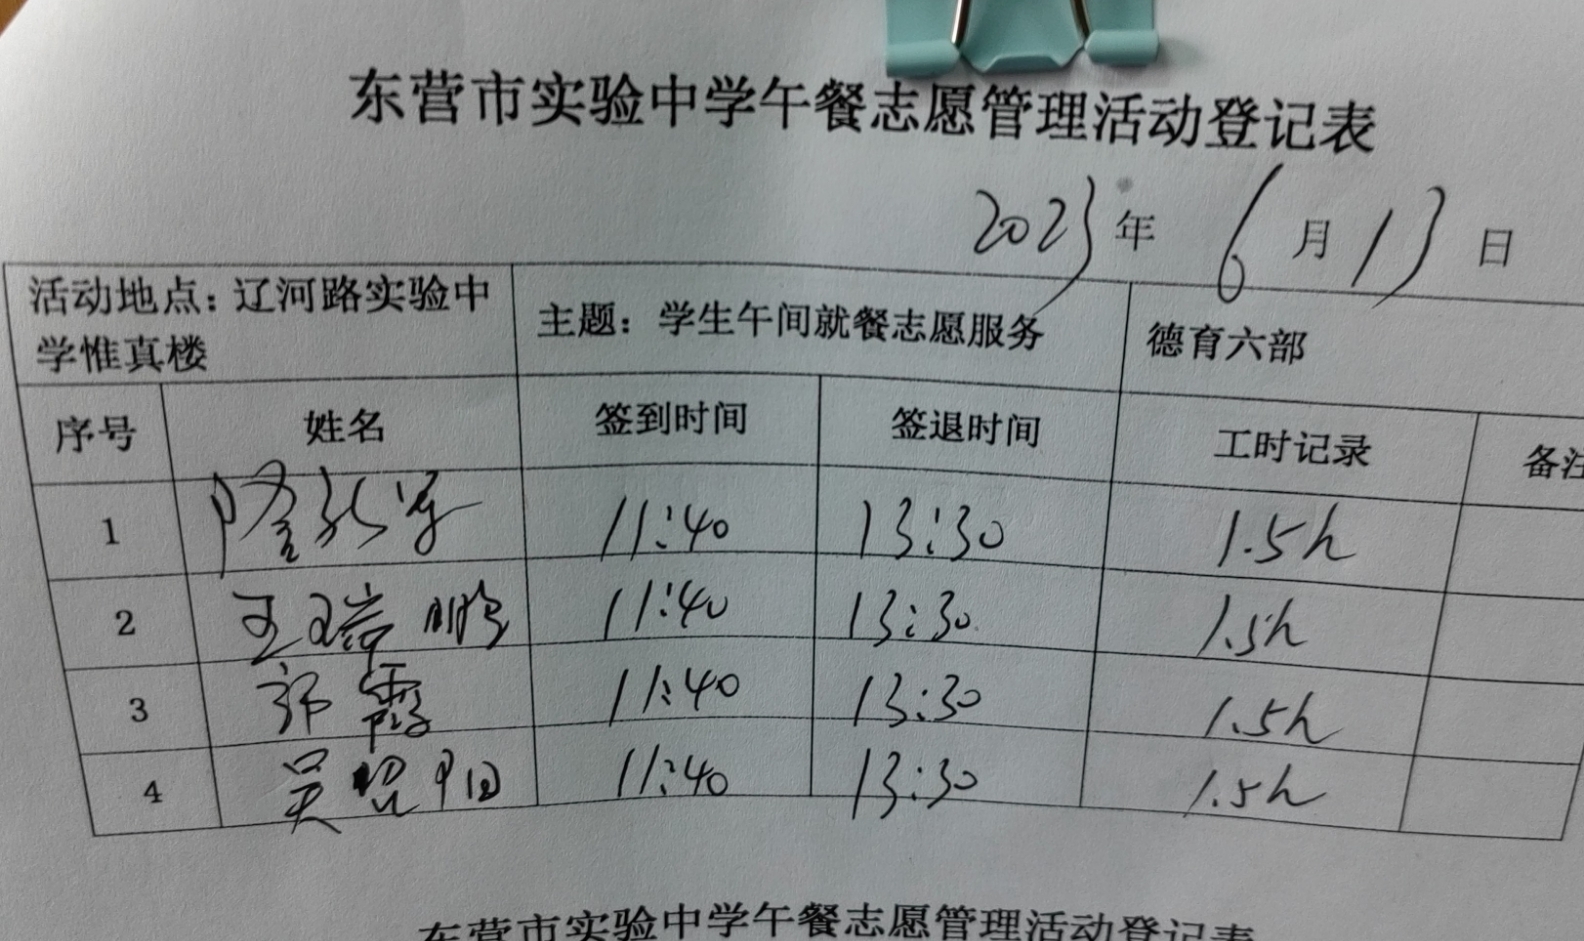 东营市实验中学午餐志愿管理活动登记表
2023年 6月13日
活动地点：辽河路实验中学惟真楼 主题：学生午间就餐志愿服务 德育六部
序号 姓名 签到时间 签退时间 工时记录 备注
1 11:40 13:30 1.5h
2 王瑞鹏 11:40 13:30 1.5h
3 郭霞 11:40 13:30 1.5h
4 吴 阳 11:40 13:30 1.5h
东营市实验中学午餐志愿管理活动登记表